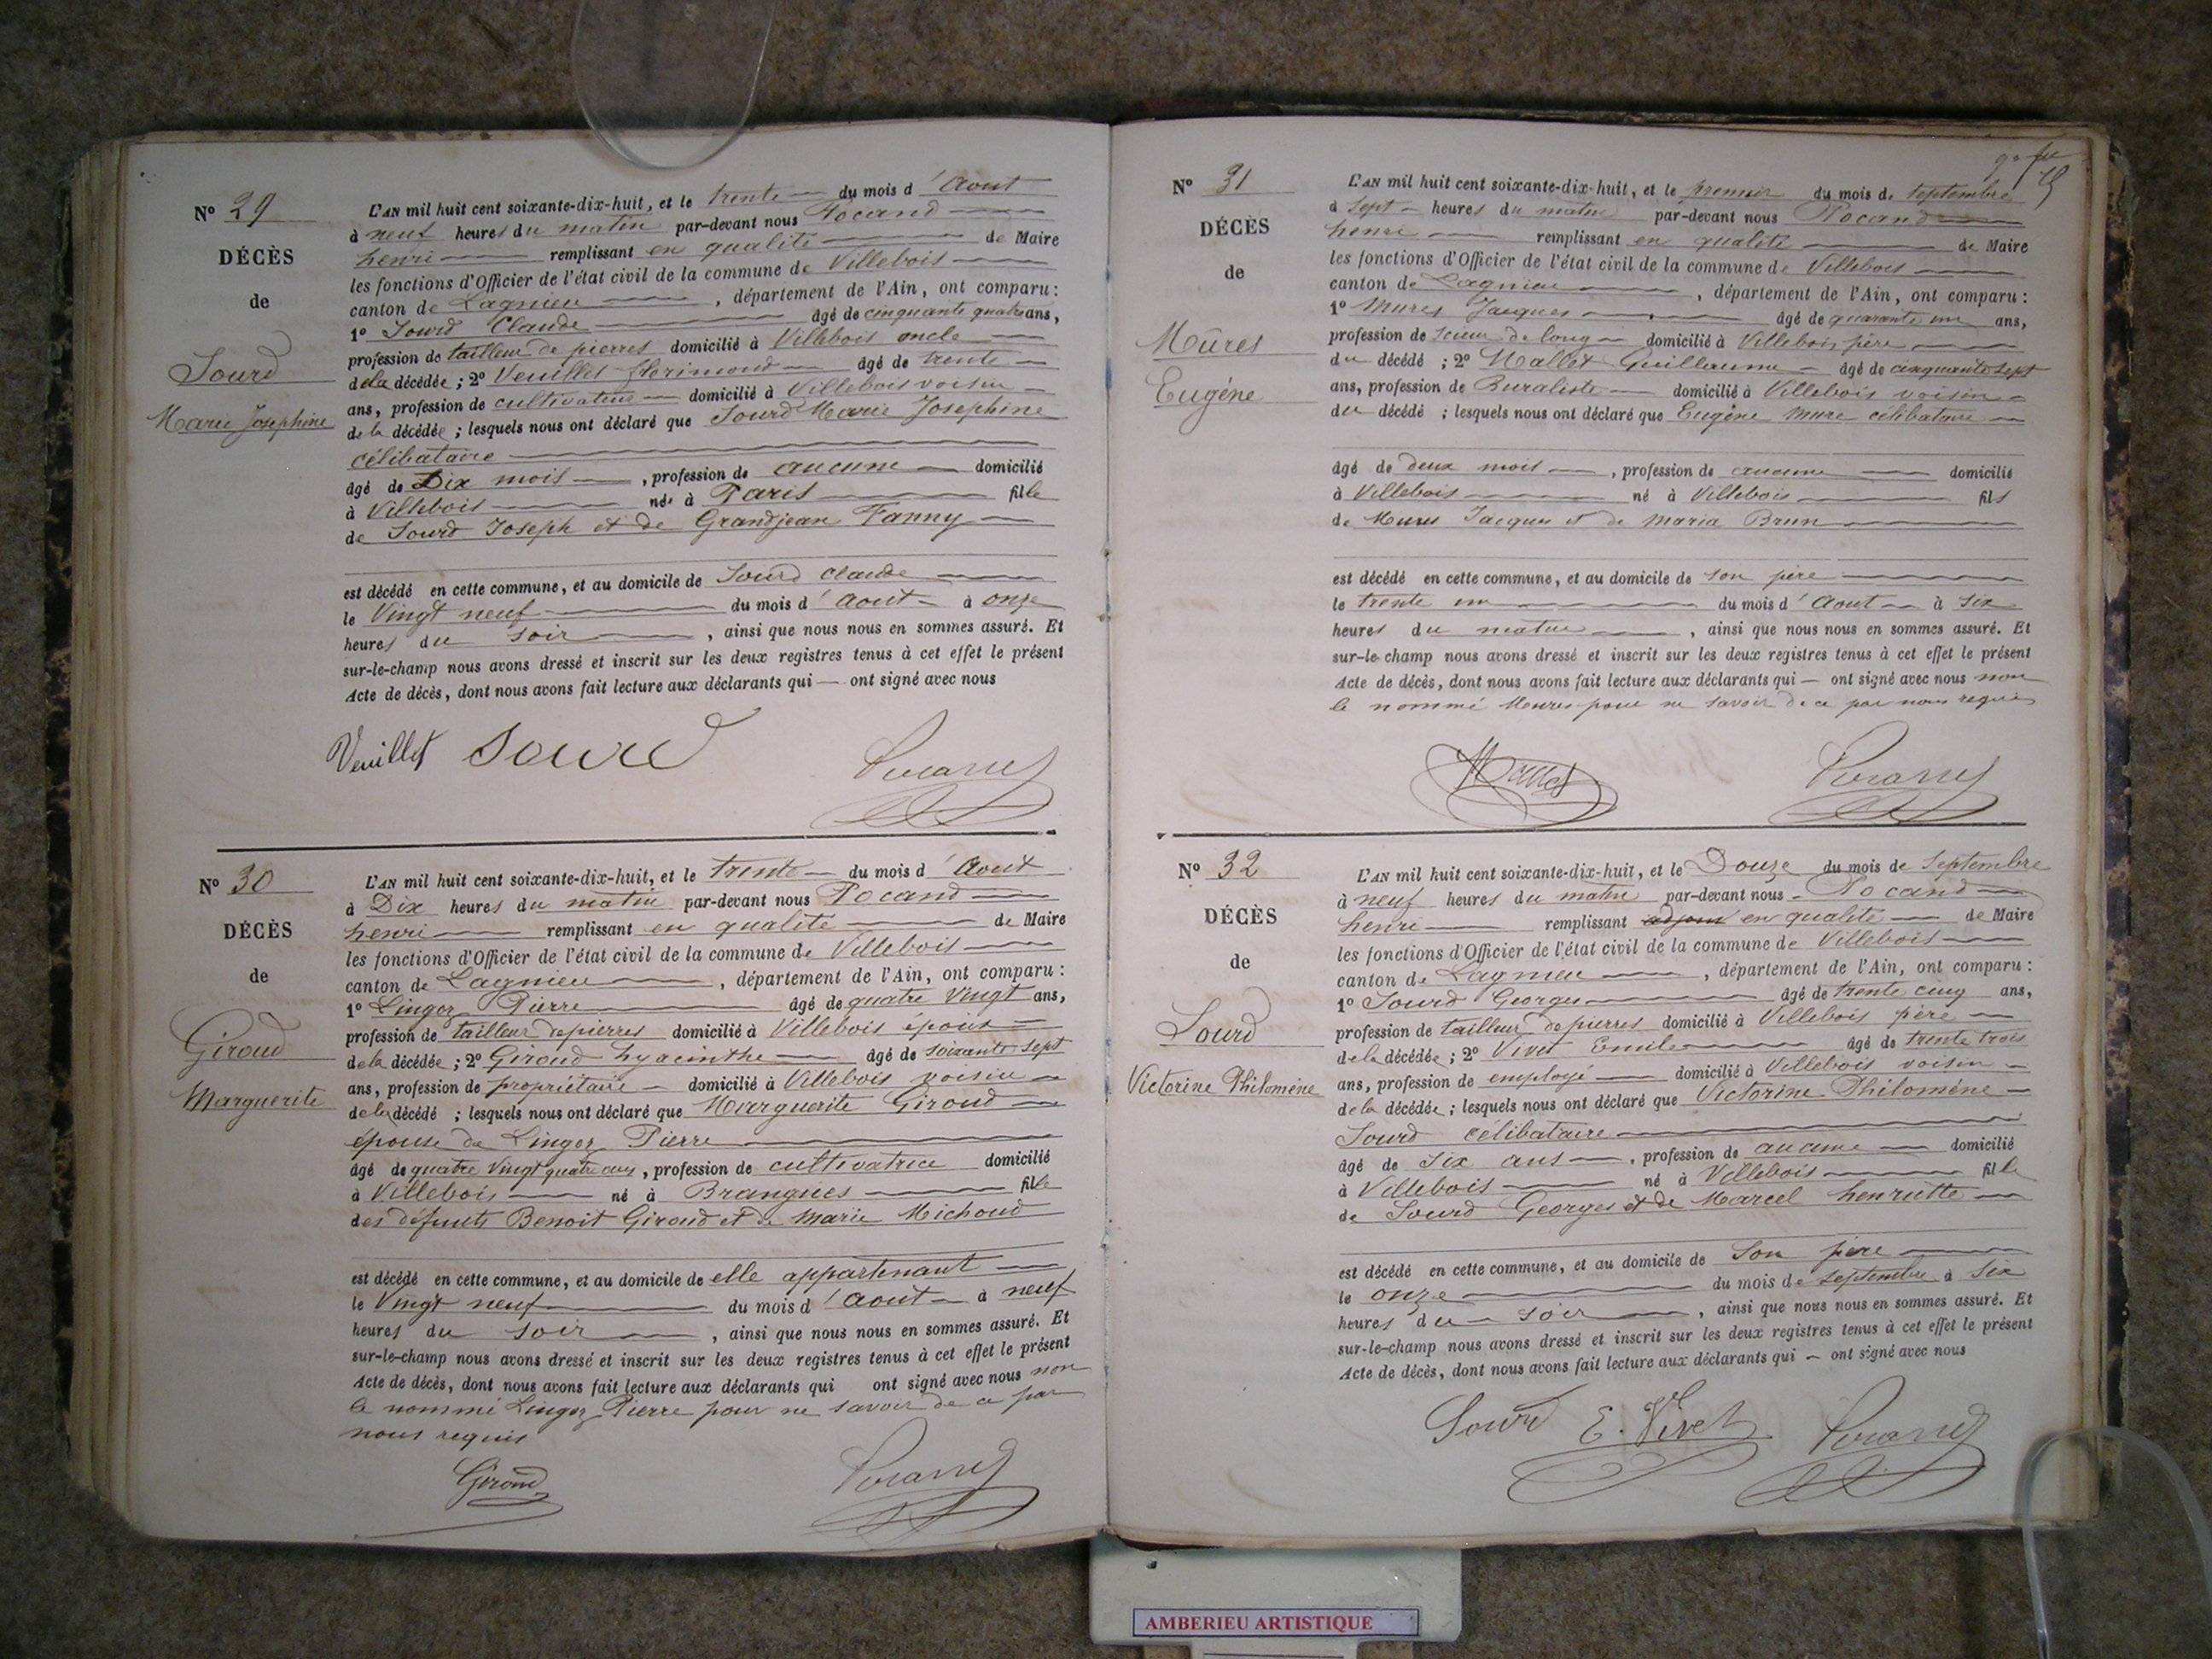 N° 29
DÉCÈS
de
Sourd
Marie Josephine
L'AN mil huit cent soixante-dix-huit, et le trente du mois d'Aout
à neuf heures du matin par-devant nous Pocand
henri remplissant en qualité de Maire
les fonctions d'Officier de l'état civil de la commune de Villebois
canton de Lagnieu, département de l'Ain, ont comparu :
1° Sourd Claude âgé de cinquante quatre ans,
profession de tailleur de pierres domicilié à Villebois oncle
de la décédée ; 2° Veuillet florimond âgé de trente
ans, profession de cultivateur domicilié à Villebois voisin
de la décédée ; lesquels nous ont déclaré que Sourd Marie Josephine
célibataire
âgé de Dix mois, profession de aucune domicilié
à Villebois née à Paris fille
de Sourd Joseph et de Grandjean Fanny
est décédé en cette commune, et au domicile de Sourd claude
le Vingt neuf du mois d'Aout à onze
heures du soir, ainsi que nous nous en sommes assuré. Et
sur-le-champ nous avons dressé et inscrit sur les deux registres tenus à cet effet le présent
Acte de décès, dont nous avons fait lecture aux déclarants qui ont signé avec nous
Veuillet Sourd Pocand
N° 30
DÉCÈS
de
Giroud
Marguerite
L'AN mil huit cent soixante-dix-huit, et le trente du mois d'Aout
à Dix heures du matin par-devant nous Pocand
henri remplissant en qualité de Maire
les fonctions d'Officier de l'état civil de la commune de Villebois
canton de Lagnieu, département de l'Ain, ont comparu :
1° Lingoz Pierre âgé de quatre Vingt ans,
profession de tailleur de pierres domicilié à Villebois époux
de la décédée ; 2° Giroud hyacinthe âgé de soixante sept
ans, profession de propriétaire domicilié à Villebois voisin
de la décédé ; lesquels nous ont déclaré que Marguerite Giroud
épouse de Lingoz Pierre
âgé de quatre Vingt quatre ans, profession de cultivatrice domicilié
à Villebois né à Brangues fille
des défunts Benoit Giroud et de Marie Michoud
est décédé en cette commune, et au domicile de elle appartenant
le Vingt neuf du mois d'Aout à neuf
heures du soir, ainsi que nous nous en sommes assuré. Et
sur-le-champ nous avons dressé et inscrit sur les deux registres tenus à cet effet le présent
Acte de décès, dont nous avons fait lecture aux déclarants qui ont signé avec nous non
le nommé Lingoz Pierre pour ne savoir de ce par
nous requis
Giroud Pocand
N° 31
DÉCÈS
de
Mûres
Eugéne
L'AN mil huit cent soixante-dix-huit, et le premier du mois de septembre
à sept heures du matin par-devant nous Pocand
henri remplissant en qualité de Maire
les fonctions d'Officier de l'état civil de la commune de Villebois
canton de Lagnieu, département de l'Ain, ont comparu :
1° Mures Jacques âgé de quarante un ans,
profession de scieur de long domicilié à Villebois père
du décédé ; 2° Mallet Guillaume âgé de cinquante sept
ans, profession de Buraliste domicilié à Villebois voisin
du décédé ; lesquels nous ont déclaré que Eugéne Mure célibataire
âgé de deux mois, profession de aucune domicilié
à Villebois né à Villebois fils
de Mures Jacques et de Maria Brun
est décédé en cette commune, et au domicile de son père
le trente un du mois d'Aout à six
heures du matin, ainsi que nous nous en sommes assuré. Et
sur-le-champ nous avons dressé et inscrit sur les deux registres tenus à cet effet le présent
Acte de décès, dont nous avons fait lecture aux déclarants qui ont signé avec nous non
le nommé Mures pour ne savoir de ce par nous requis
Mallet Pocand
N° 32
DÉCÈS
de
Sourd
Victorine Philoméne
L'AN mil huit cent soixante-dix-huit, et le Douze du mois de Septembre
à neuf heures du matin par-devant nous Pocand
henri remplissant adjoint en qualité de Maire
les fonctions d'Officier de l'état civil de la commune de Villebois
canton de Lagnieu, département de l'Ain, ont comparu :
1° Sourd Georges âgé de trente cinq ans,
profession de tailleur de pierres domicilié à Villebois père
de la décédée ; 2° Vivet Emile âgé de trente trois
ans, profession de employé domicilié à Villebois voisin
de la décédée ; lesquels nous ont déclaré que Victorine Philoméne
Sourd célibataire
âgé de six ans, profession de aucune domicilié
à Villebois né à Villebois fille
de Sourd Georges et de Marcel henriette
est décédé en cette commune, et au domicile de Son père
le onze du mois de septembre à six
heures du soir, ainsi que nous nous en sommes assuré. Et
sur-le-champ nous avons dressé et inscrit sur les deux registres tenus à cet effet le présent
Acte de décès, dont nous avons fait lecture aux déclarants qui ont signé avec nous
Sourd E. Vivet Pocand
AMBERIEU ARTISTIQUE